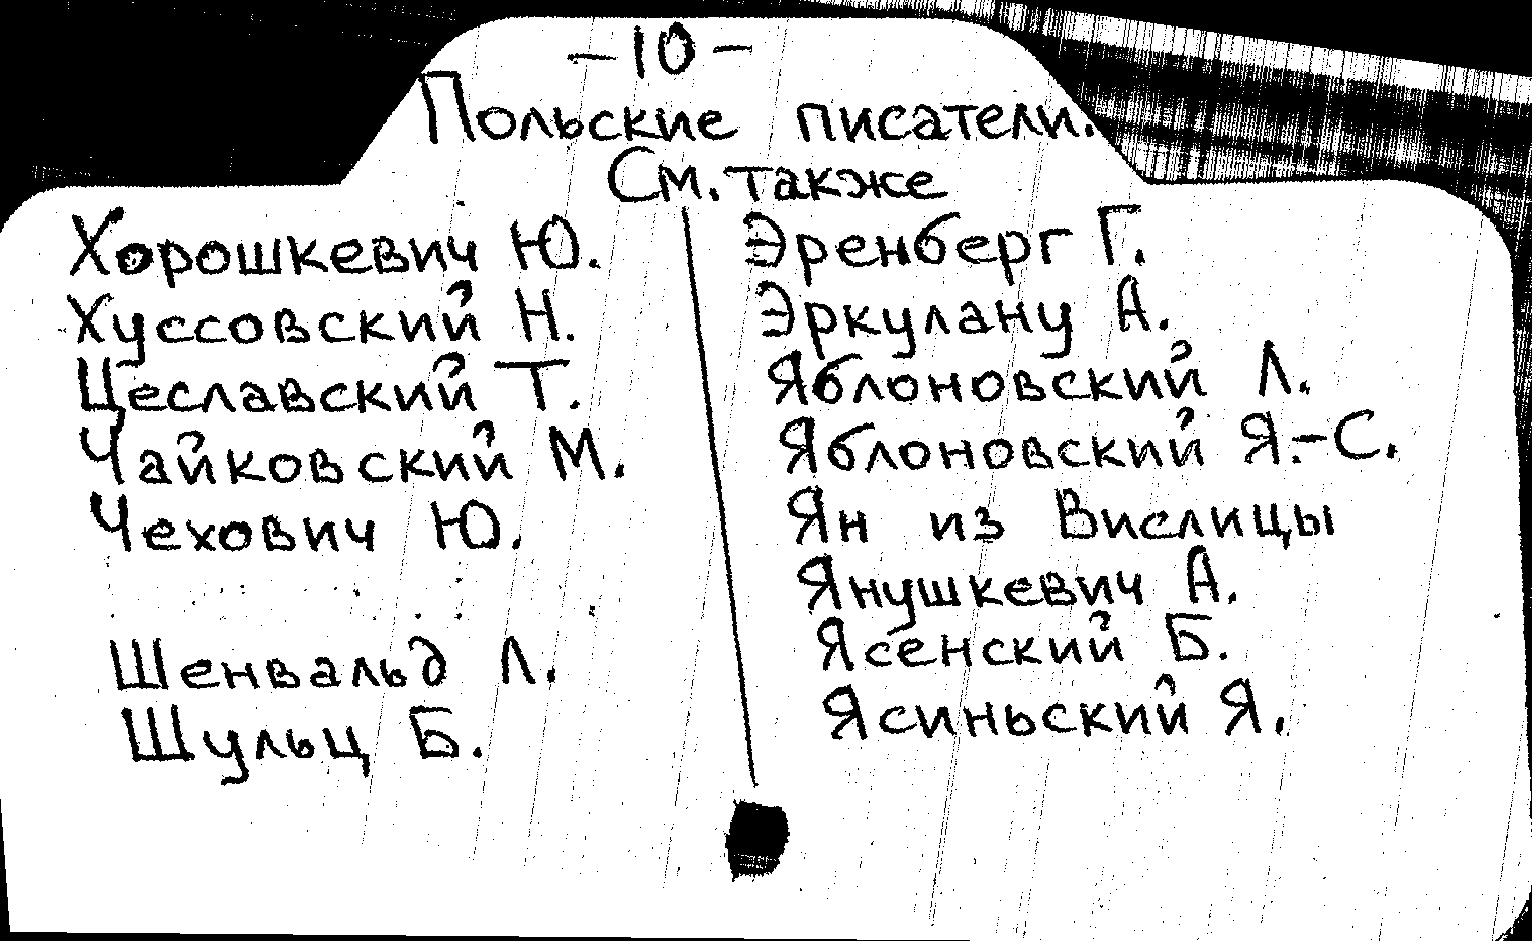 -10-
Польские писатели.
См. также
Хорошкевич Ю.
Хуссовский Н.
Цеславский Т.
Чайковский М.
Чехович Ю.
Шенвальд Л.
Шульц Б.
Эренберг Г.
Эркулану А.
Яблоновский Л.
Яблоновский Я.-С.
Ян из Вислицы
Янушкевич А.
Ясенский Б.
Ясиньский Я.